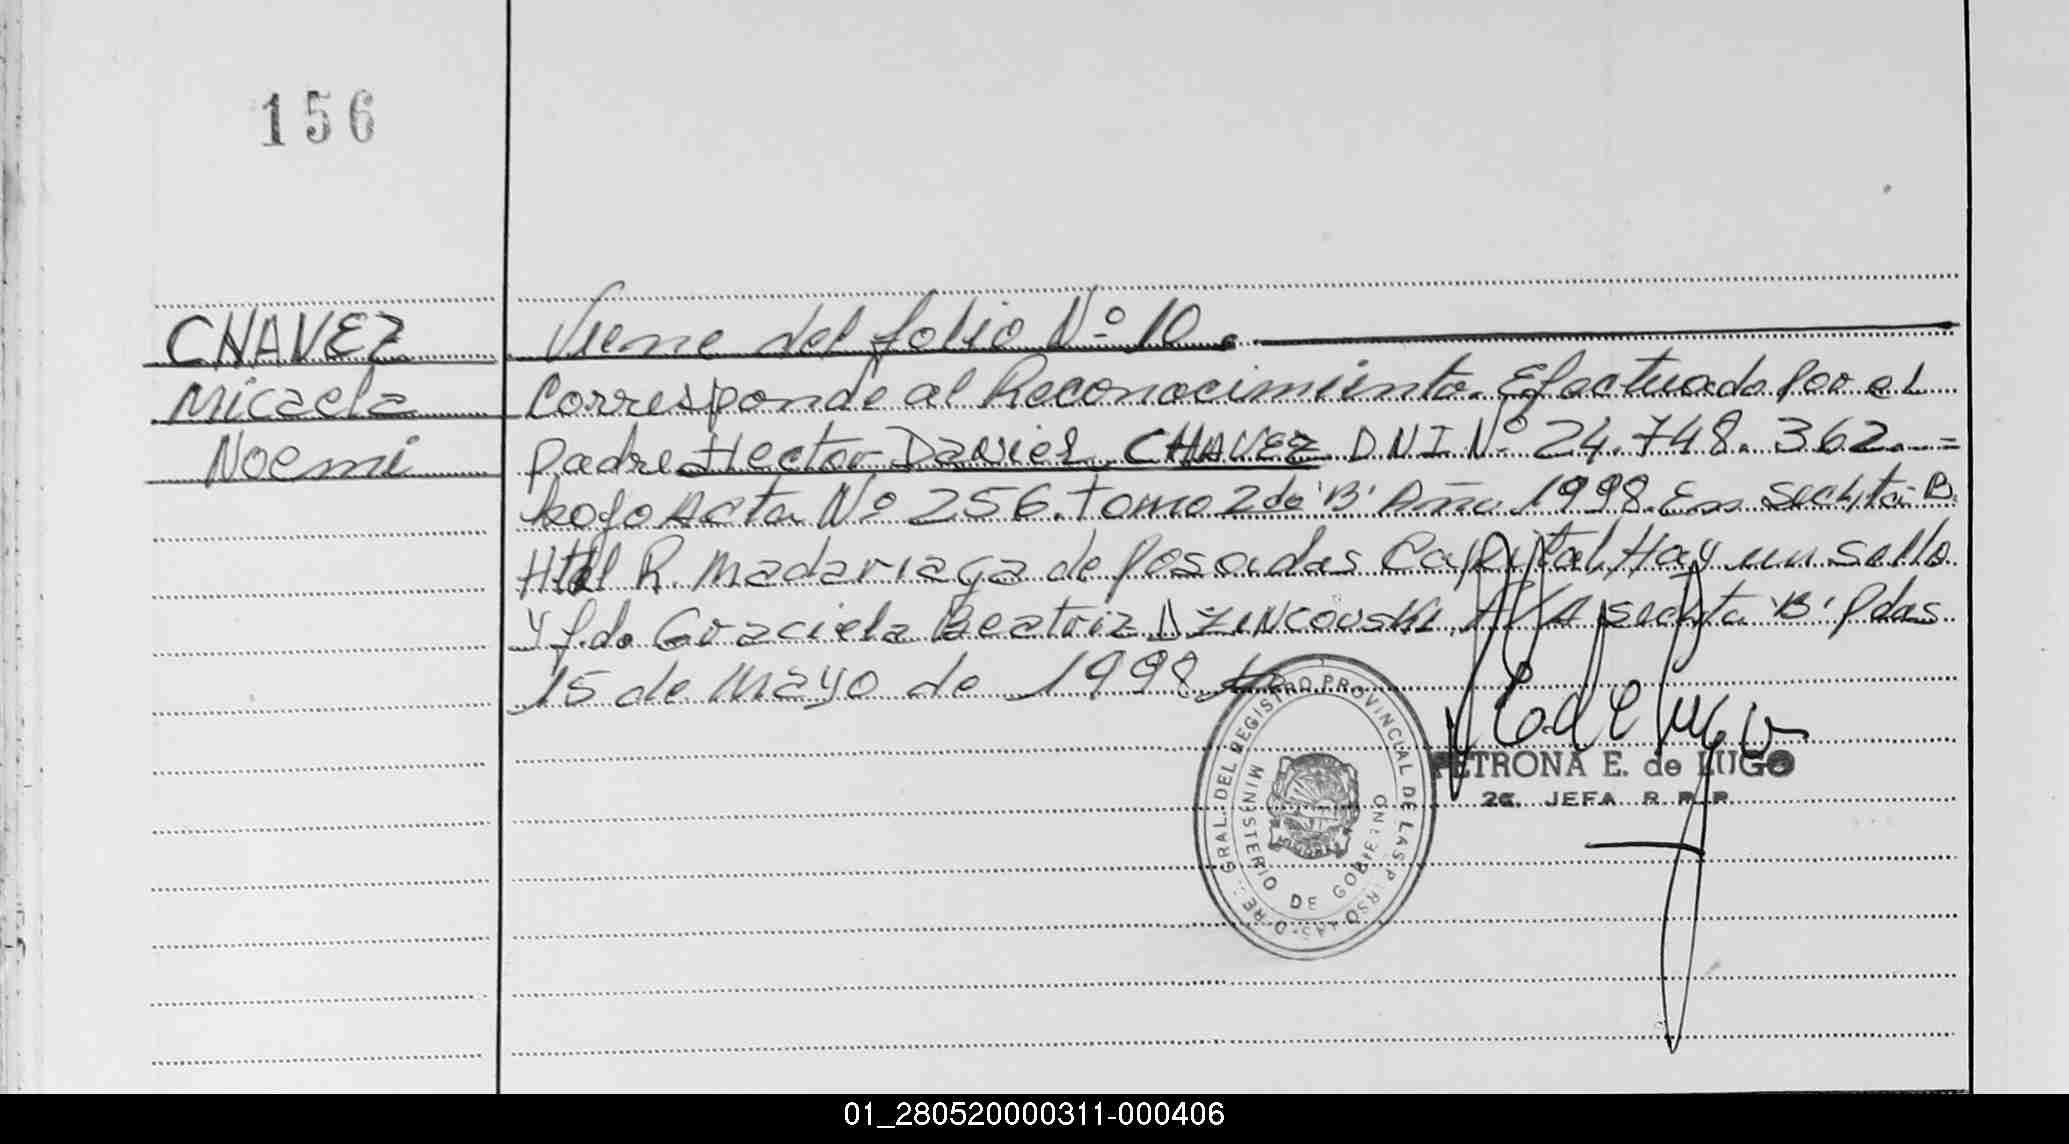 156
CHAVEZ
Micaela
Noemi
Viene del folio Nº 10.
Corresponde al Reconocimiento. Efectuado por el
padre Hector Daniel CHAVEZ DNI Nº 24.748.362. =
bajo Acta Nº 256. tomo 2do 'B' Año 1998. En Secc/ta B.
Htal R. Madariaga de Posadas Capital. Hay un sello
y fdo Graciela Beatriz DZINCOVSKI. A/A secc/ta 'B' Pdas
15 de Mayo de 1998
PETRONA E. de LUGO
2a. JEFA R.P.P.
GRAL. DEL REGISTRO PROVINCIAL DE LAS PERSONAS
MINISTERIO DE GOBIERNO
MISIONES
01_280520000311-000406